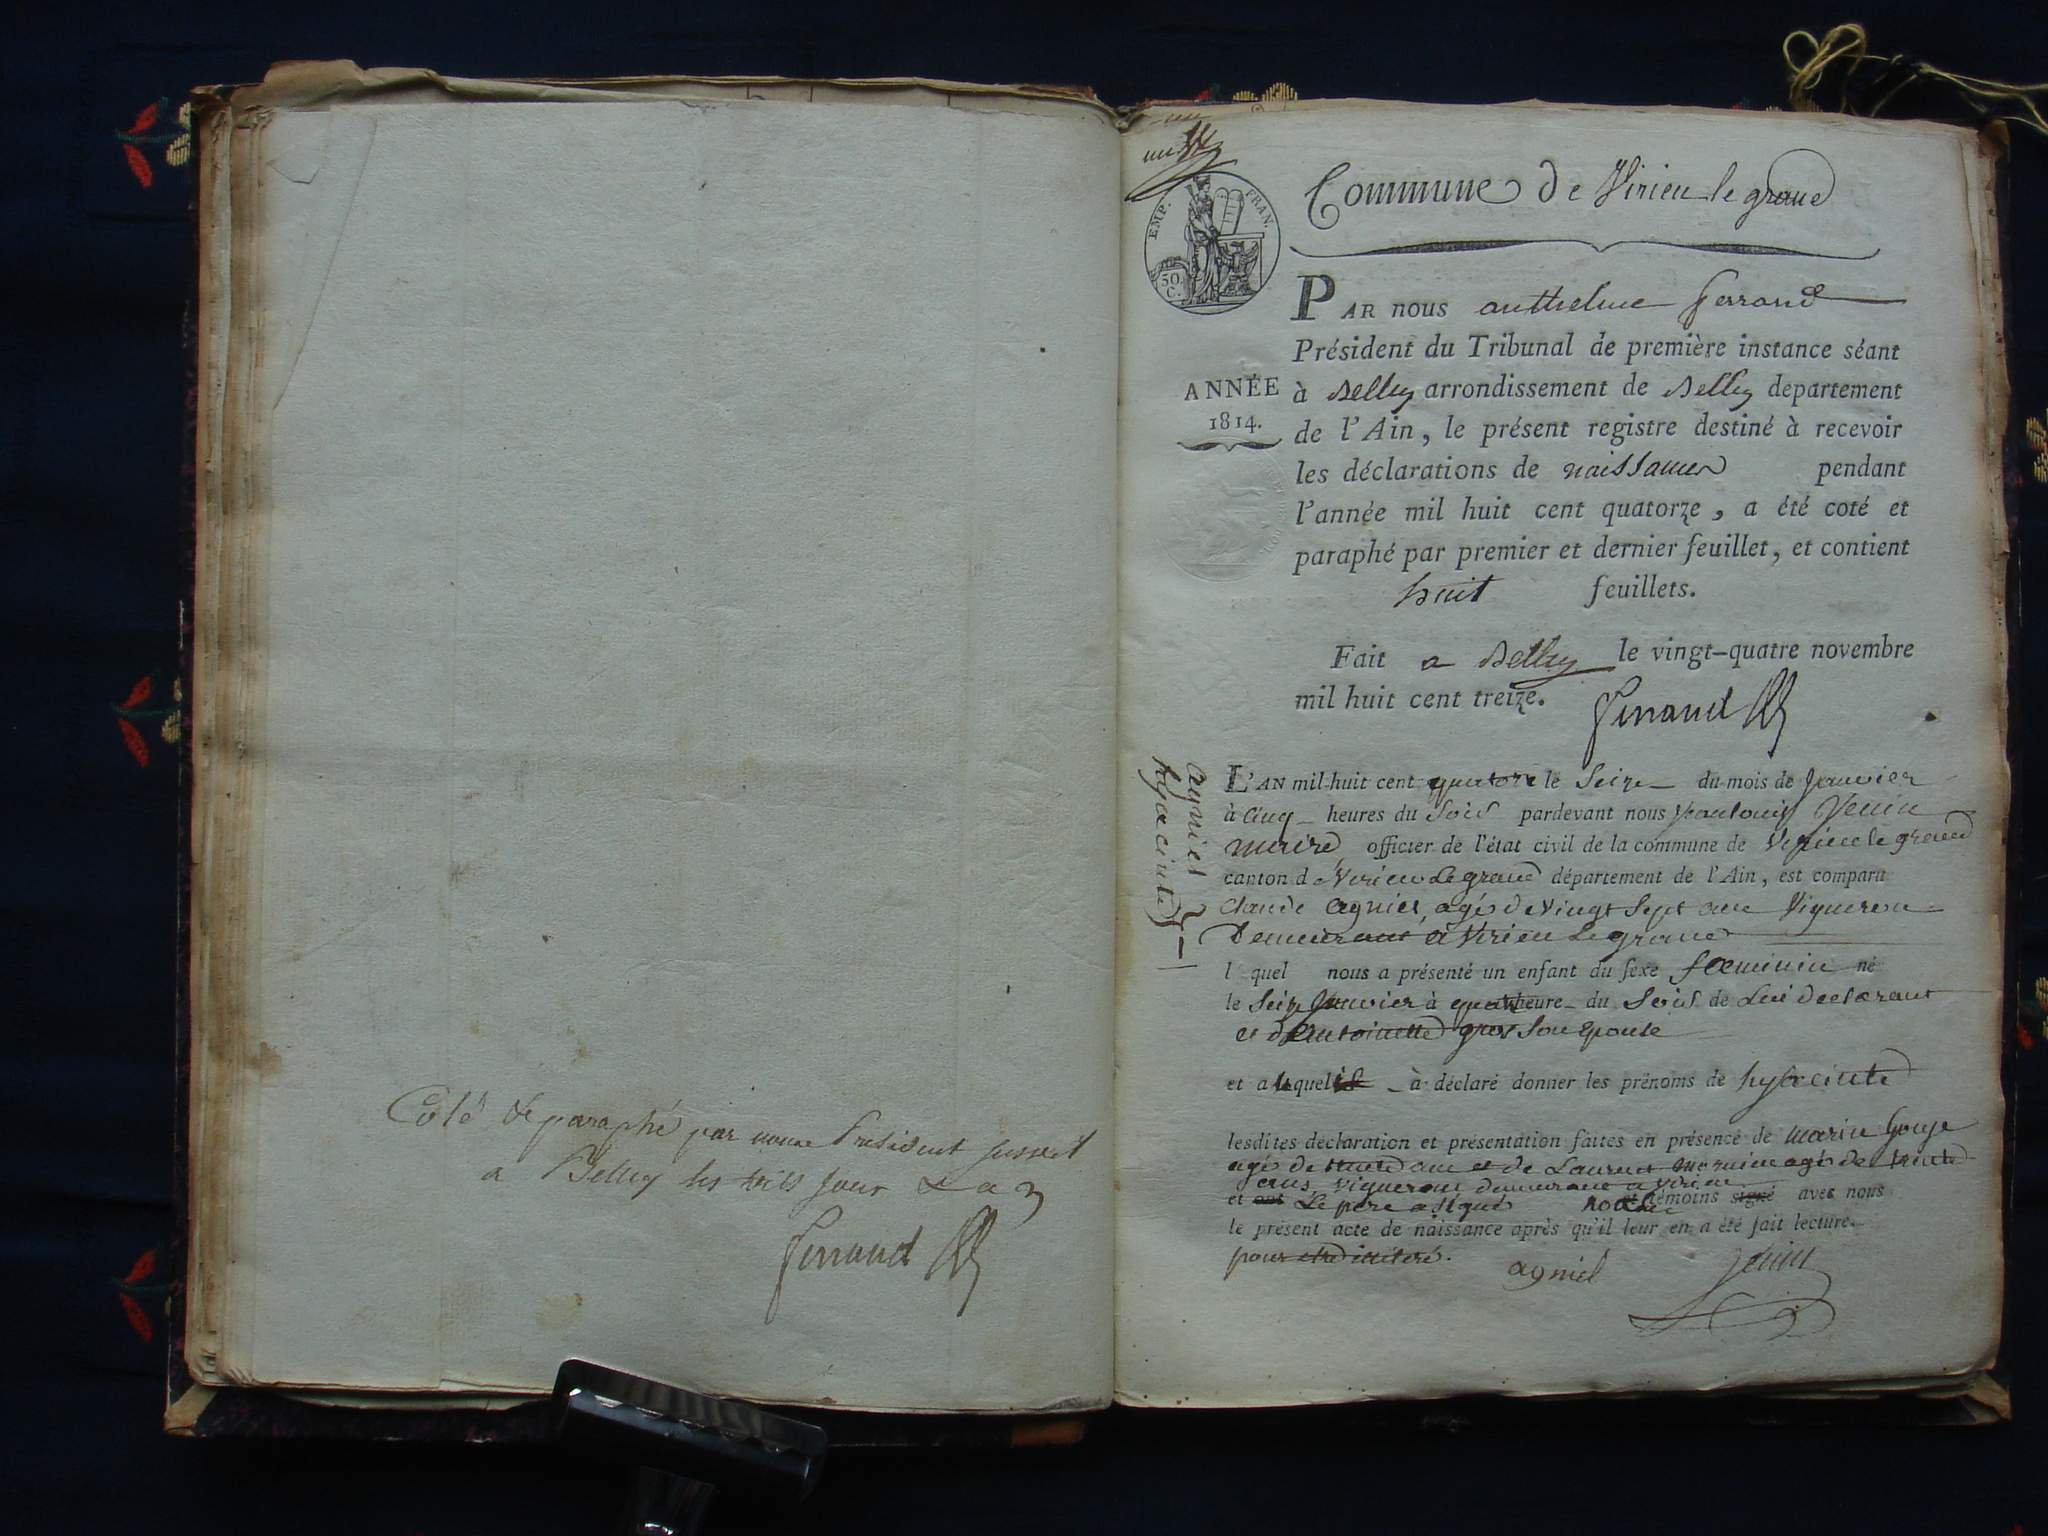 Coté & paraphé par nous President susdit
a Belley les
Ferrand
EMP. FRAN.
50. C.
Commune de Virieu le grand
PAR nous anthelme ferrand
Président du Tribunal de première instance séant
ANNÉE
1814.
à Belley arrondissement de Belley département
de l'Ain, le présent registre destiné à recevoir
les déclarations de naissances pendant
l'année mil huit cent quatorze, a été coté et
paraphé par premier et dernier feuillet, et contient
huit feuillets.
Fait a Belley le vingt-quatre novembre
mil huit cent treize.
Ferrand
agniel
hyacinte
L'AN mil-huit cent quatorze le Seize du mois de Janvier
à Cinq heures du Soir pardevant nous Jenin
maire officier de l'état civil de la commune de Virieu le grand
canton de Virieu Le grand département de l'Ain, est comparu
Claude agniel, agé de Vingt Sept ans Vigneron
Demeurant a Virieu Le grand
lequel nous a présenté un enfant du sexe fœminin né
le Seize Janvier à quatre heure du Soir de Lui declarant
et d'Antoinette Son Epouse
et auquel à déclaré donner les prénoms de hyacinte
lesdites déclaration et présentation faites en présence de
agé de trente ans et de Laurent agé de trente
ans, Vignerons demeurant a Virieu
et ont Le pere a Signé témoins signé avec nous
le présent acte de naissance après qu'il leur en a été fait lecture.
agniel Jenin